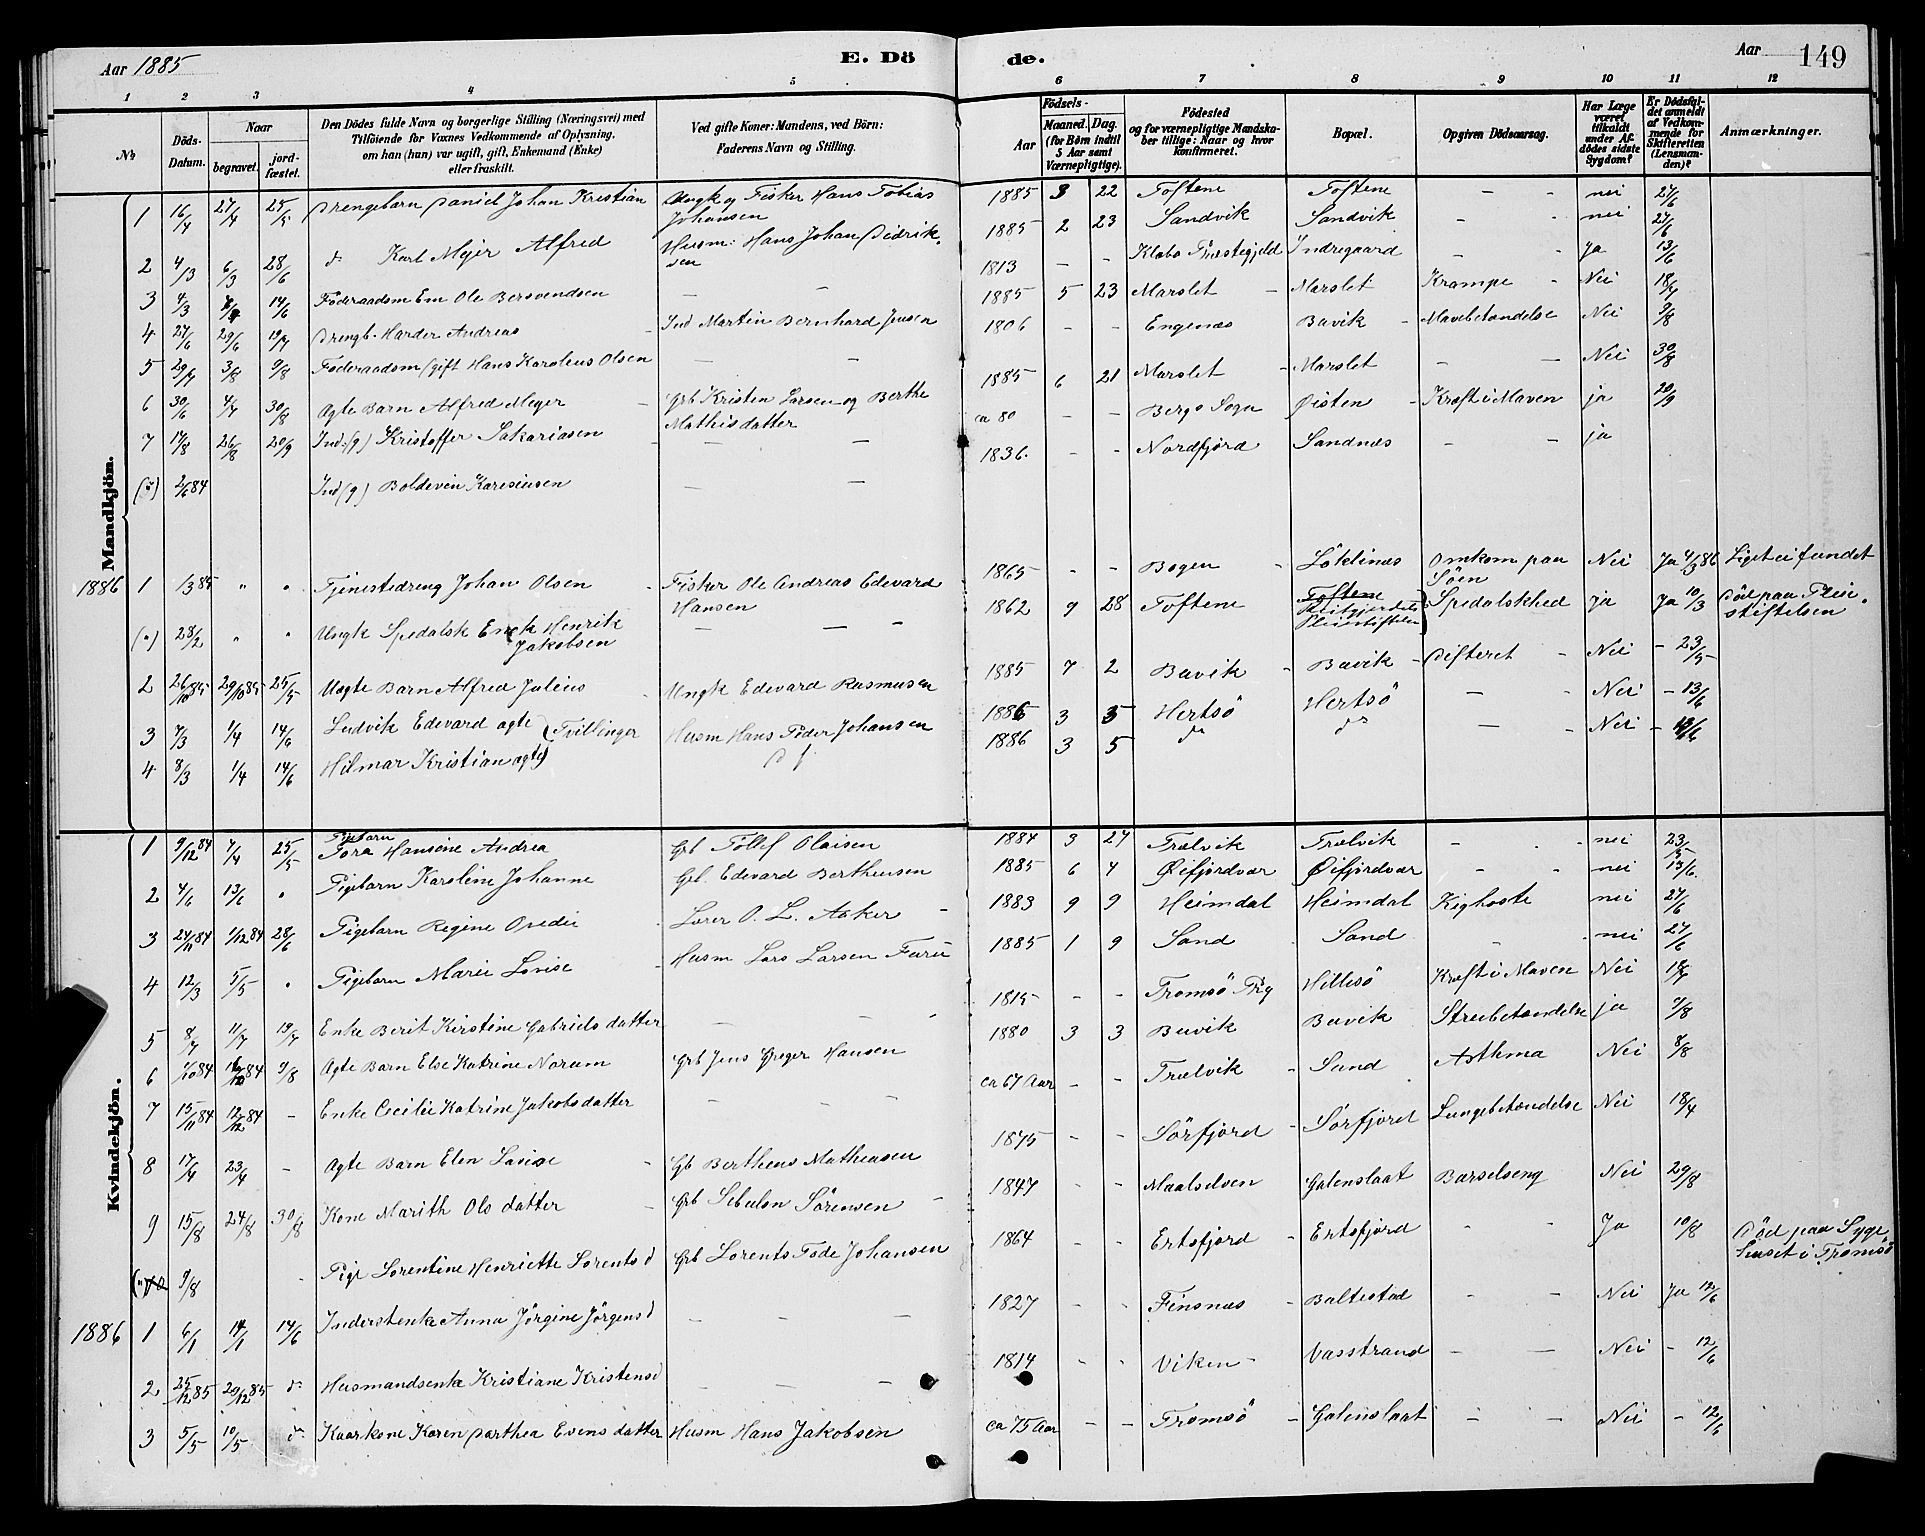 Aar 1885
E. Dö
de.
Aar
149
1 2 3 4 5 6 7 8 9 10 11 12
No
Döds-Datum.
Naar
begravet.
jord-fæstet.
Den Dödes fulde Navn og borgerlige Stilling (Næringsvei) med
Tilföiende for Voxnes Vedkommende af Oplysning,
om han (hun) var ugift, gift, Enkemand (Enke)
eller fraskilt.
Ved gifte Koner: Mandens, ved Börn:
Faderens Navn og Stilling.
Födsels-
Aar
Maaned.
Dag.
(for Börn indtil
5 Aar samt
Værnepligtige).
Födested
og for værnepligtige Mandska-
ber tillige: Naar og hvor
konfirmeret.
Bopæl.
Opgiven Dödsaarsag.
Har Læge
været
tilkaldt
under Af-
dödes sidste
Sygdom?
Er Dödsfal-
det anmeldt
af Vedkom-
mende for
Skifteretten
(Lensman-
den)?
Anmærkninger.
Mandkjön.
1 16/4 27/4 25/5 Drengebarn Daniel Johan Kristian Ungk og Fisker Hans Tobias Johansen 1885 3 22 Toftene Toftene - - nei 27/6
2 4/3 6/3 28/6 d. Karl Mejer Alfred Husm: Hans Johan Didriksen 1885 2 23 Sandvik Sandvik - - nei 27/6
3 4/3 14/6 Föderaadsm Em Ole Bersvendsen - - 1813 - - Klæbo Præstegjeld Indregaard - - Ja 13/6
4 27/6 29/6 19/7 Drengb. Harder Andreas Ind Martin Bernhard Jensen 1885 5 23 Marslet Marslet Krampe Nei 18/7
5 29/7 3/8 9/8 Föderaadsm (gift Hans Karolius Olsen - - 1806 - - Engenæs Buvik Mavebetændelse Nei 9/8
6 30/6 4/7 30/8 Ægte Barn Alfred Meyer Grb Kristen Larsen og Berthe Mathisdatter 1885 6 21 Marslet Marslet - - Nei 30/8
7 17/8 26/8 20/9 Ind: (g) Kristoffer Sakariasen - - ca 80 - - Bergs Sogn Öisten Kræft i Maven ja 20/9
2/6 84 Ind (g) Boldevin Karesiusen - - 1836. - - Nordfjord Sandnæs - - ja
1886 1 1/3 85 " " Tjenestedreng Johan Olsen Fisker Ole Andreas Edevard Hansen 1865 - - Bogen Löklinæs Omkom paa Söen Nei Ja 4/3 86 Liget ei fundet
(") 28/2 " " Ungk Spedalsk Enok Henrik Jakobsen - - - 1862 9 28 Toftene Toftene Reitgjerdets Pleiestiftelse Spedalskhed ja Ja 10/3 Död paa Pleiestiftelsen
2 26/10 85 29/10 85 25/5 Uægte Barn Alfred Julius Ungk Edevard Rasmusen 1885 7 2 Buvik Buvik Difteret Nei - 23/5
3 7/3 1/4 14/6 Ludvik Edevard ægte (Tvillinger Husm Hans Peder Johansen 1886 3 5 Hertsö Hertsö - Nei - 13/6
4 8/3 1/4 14/6 Hilmar Kristian ægte) 1886 3 5 do do - Nei
Kvindekjön.
1 9/12 84 7/4 25/5 Pigebarn Tora Hansine Andrea Grb Tollef Olaisen 1884 3 27 Trælvik Trælvik - - nei 23/5
2 4/6 13/6 " Pigebarn Karoline Johanne Grb. Edevard Bertheusen 1885 6 4 Öifjordvær Öifjordvær - - nei 13/6.
3 24/11 84 1/12 84 28/6 Pigebarn Regine Opedie Lærer O. L. Aaker 1883 9 9 Heimdal Heimdal Kighoste nei 27/6
4 12/3 5/5 " Pigebarn Marie Lovise Husm Lars Larsen Furu 1885 1 9 Sand Sand - nei 27/6
5 8/7 11/7 19/7 Enke Berit Kirstine Gabriels datter - - 1815 - - Tromsö Prg Hillesö Kræft i Maven Nei 18/7
6 84 84 9/8 Ægte Barn Else Katrine Norum Grb Jens Greger Hansen 1880 3 3 Buvik Buvik Strubetændelse ja 9/8
7 15/11 84 12/12 84 - Enke Cecilie Katrine Jakobsdatter - - ca 67 Aar - - Trælvik Sand Asthma Nei 8/8
8 17/4 23/4 - Ægte Barn Elen Lovise Gb Bertheus Matheusen 1875 - - Sörfjord Sörfjord Lungebetændelse Nei 18/4
9 15/8 24/8 30/8 Kone Marith Ols datter Grb Sebulon Sörensen 1847 - - Maalselven Galenslaat Barselseng Nei 29/8
9/8 Pige Lorentine Henriette Lorentsd Grb Lorents Tode Johansen 1864 - - Ertsfjord Ertsfjord - - Ja 10/8 Död paa Sygehuset i Tromsö
1886 1 6/1 11/1 14/6 Inderstenke Anna Jörgine Jörgensd - - - 1827 - - Finsnæs Baltestad - - Nei Ja 12/6
2 25/12 85 29/12 85 do Husmandsenke Kristiane Kristensd - - - 1814 - - Viken Vasstrand - - Nei - 12/6
3 5/5 10/5 do Kaarkone Karen Dorthea Evens datter Husm Hans Jakobsen ca 75 Aar - - Tromsö Galenslaat - - Nei - 12/6